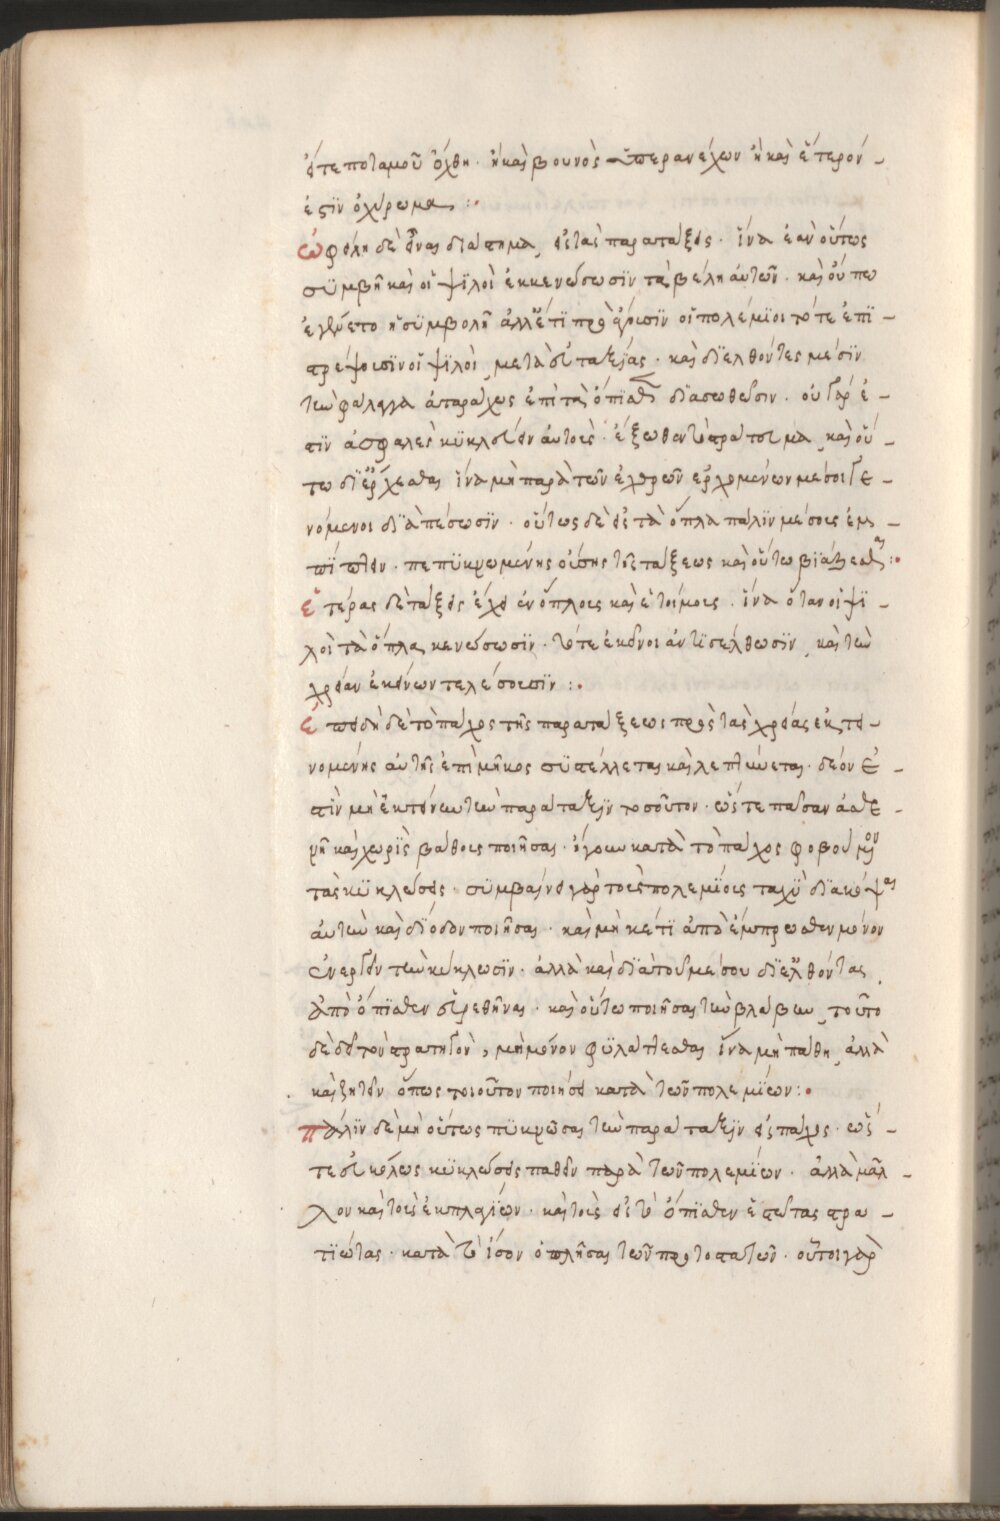 εἴτε ποταμοῦ ὄχθη· ἢ καὶ βουνὸς ὑπερανέχων ἢ καὶ ἕτερόν
ἐστιν ὀχύρωμα :·
ὠφέλη δὲ εἶναι διάστημα εἰς τὰς παρατάξεις· ἵνα ἐὰν οὕτως
συμβῇ καὶ οἱ ψιλοὶ ἐκκενώσωσιν τὰ βέλη αὐτῶν· καὶ οὔπω
ἐγένετο ἡ συμβολὴ ἀλλ' ἔτι πρὸ οἱ πολέμιοι τότε ἐπι
στρέψωσιν οἱ ψιλοὶ μετὰ εὐταξίας· καὶ διελθόντες μέσιν
τὴν φάλαγγα ἀταράχως ἐπὶ τὰ ὄπισθεν διασωθῶσιν· οὐ γάρ ἐ
στιν ἀσφαλὲς κυκλεύειν αὐτοὺς ἔξωθεν τὸ στράτευμα καὶ οὕ
τω διέρχεσθαι ἵνα μὴ παρὰ τῶν ἐχθρῶν ἐρχομένων μέσοι γε
νόμενοι διαπέσωσιν· οὕτως δὲ εἰς τὰ ὅπλα πάλιν μέσοις ἐμ
πίπτειν· πεπυκνωμένης οὔσης τῆς τάξεως καὶ οὕτω βιάζεσθαι :·
ἑτέρας δὲ τάξεις ἔχε ἐνόπλοις καὶ ἑτοίμοις· ἵνα ὅταν οἱ ψι
λοὶ τὰ ὅπλα κενώσωσιν· τότε ἐκεῖνοι ἀντισέλθωσιν καὶ τὴν
χρείαν ἐκείνων τελέσουσιν :·
ἐπειδὴ δὲ τὸ πάχος τῆς παρατάξεως πρὸς τὰς χρείας ἐκτει
νομένης αὐτῆς ἐπὶ μῆκος συστέλλεται καὶ λεπτύνεται· δέον ἐ
στὶν μὴ ἐκτείνειν τὴν παράταξιν τοσοῦτον· ὥστε πᾶσαν ἀσθε
νῆ καὶ χωρὶς βάθους ποιῆσαι· ἤγουν κατὰ τὸ πάχος φοβούμενον
τὰς κυκλεύσεις· συμβαίνει γὰρ τοῖς πολεμίοις ταχὺ διακόψαι
αὐτὴν καὶ δίοδον ποιῆσαι· καὶ μὴ κέτι ἀπὸ ἔμπροσθεν μόνον
ἐνεργεῖν τὴν κύκλωσιν· ἀλλὰ καὶ διὰ τοῦ μέσου διελθόντας
ἀπὸ ὄπισθεν εὑρεθῆναι· καὶ οὕτω ποιῆσαι τὴν βλάβην τοῦτο
δὲ δεῖ τὸν στρατηγὸν, μὴ μόνον φυλάττεσθαι ἵνα μὴ πάθῃ ἀλλὰ
καὶ ζητεῖν ὅπως τοιοῦτον ποιήσει κατὰ τῶν πολεμίων :·
πάλιν δὲ μὴ οὕτως πυκνῶσαι τὴν παράταξιν εἰς πάχος· ὥσ
τε εὐκόλως κυκλεύσεις παθεῖν παρὰ τῶν πολεμίων· ἀλλὰ μᾶλ
λον καὶ τοὺς ἐκ πλαγίων· καὶ τοὺς εἰς τὸ ὄπισθεν ἑστῶτας στρα
τιώτας· κατὰ τὸ ἴσον ὁπλῆσαι τῶν πρωτοστατῶν· οὗτοι γὰρ